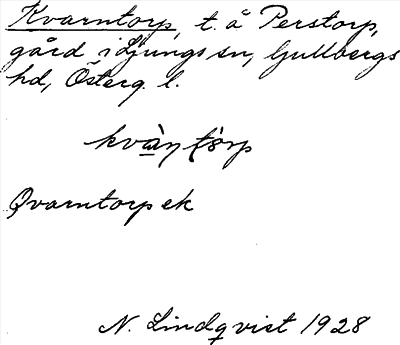 Kvarntorp, t. å Perstorp,
gård i Ljungs sn, Gullbergs
hd, Österg. l.
kvàn tòrp
Qvarntorp ek
N. Lindqvist 1928